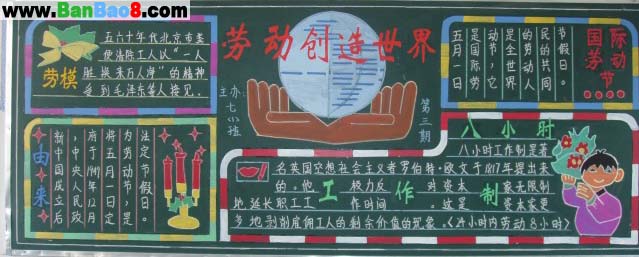 www.BanBao8.com
劳模
五六十年代北京市
便工人以“一人
脏换来万人净”的精神
受到毛泽东等人接见。
劳动创造世界
主办
七(2)班
第三期
国际劳动节
五月一日
是国际劳
动节，它
是全世界
的劳动人
民的共同
节假日。
由来
新中国成立后
，中央人民政
府于1949年12月
将五月一日定
为劳动节，是
法定节假日。
八小时
工作制
八小时工作制是著
名英国空想社会主义者罗伯特·欧文于1817年提出来
的。他极力反对资本家无限制
地延长职工工作时间。这是资本家更
多地剥削雇佣工人的剩余价值的现象。(24小时内劳动8小时)